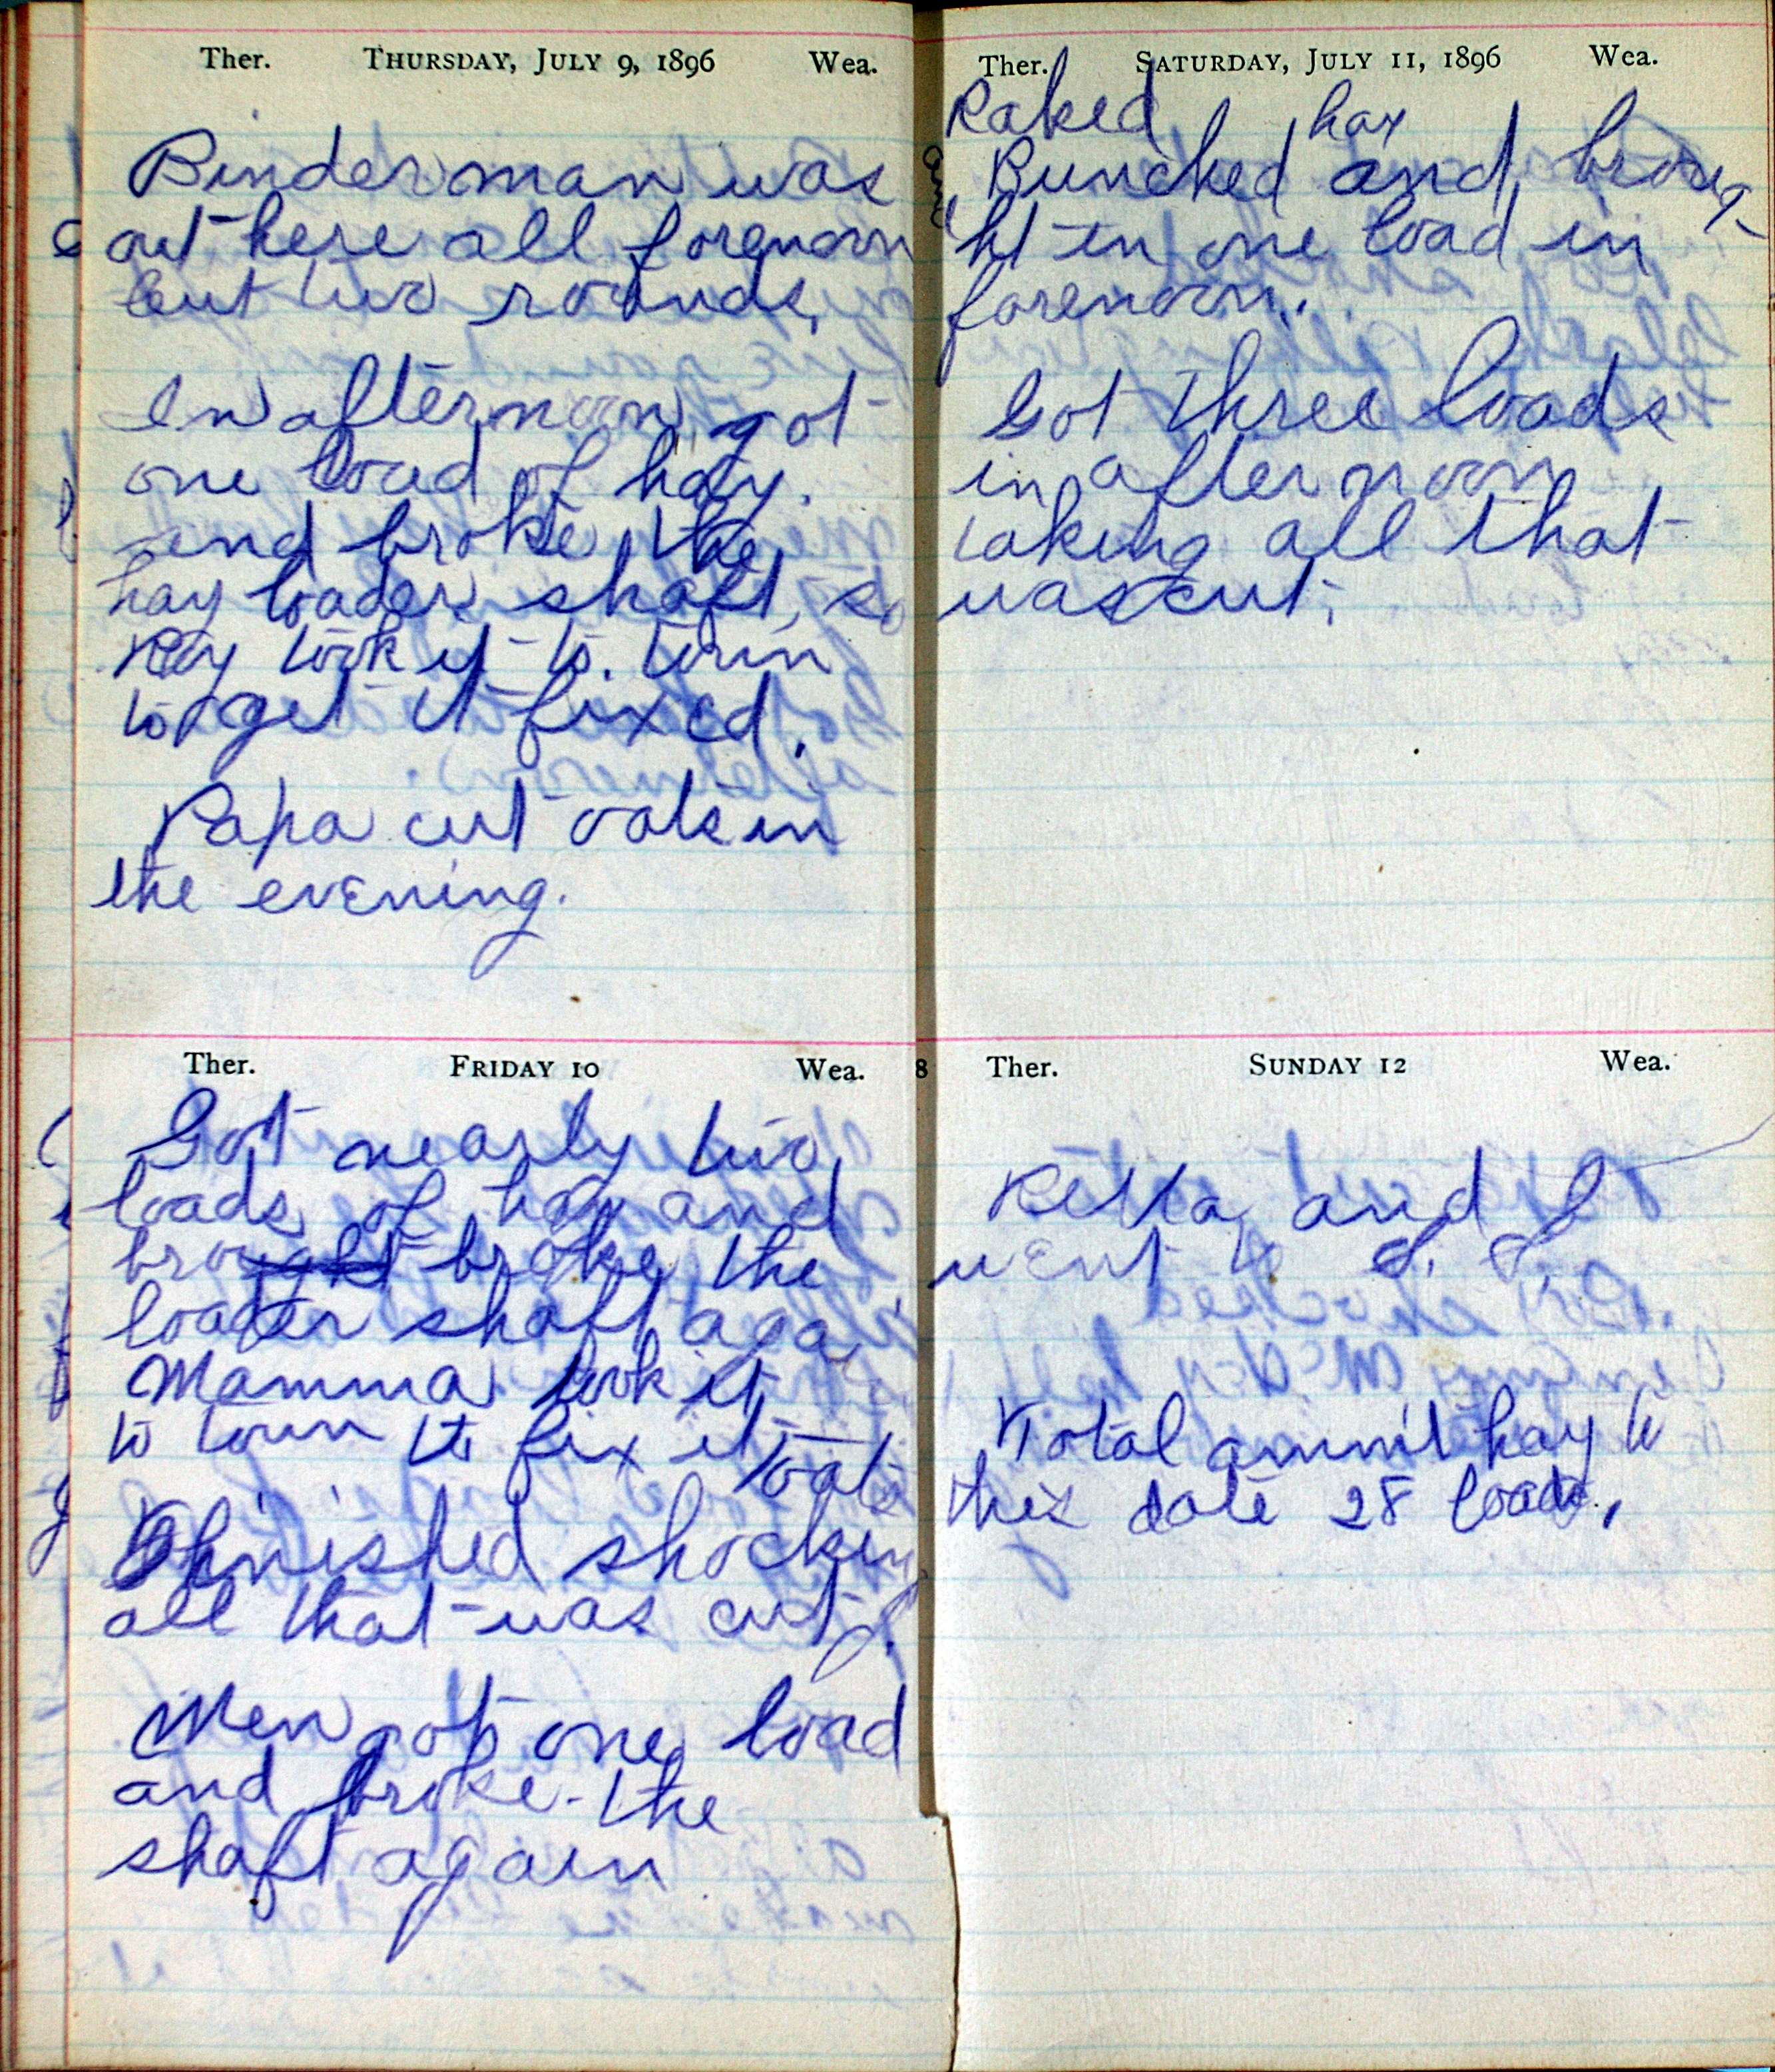 Ther. THURSDAY, JULY 9, 1896 Wea.
Binder man was
out here all forenoon
Cut two rounds,
In afternoon got
one load of hay.
and broke the
hay loader shaft, so
Ray took it to town
to get it fixed.
Papa cut oats in
the evening.
Ther. FRIDAY 10 Wea.
Got nearly two
loads of hay and
brought broke the
loader shaft aga
Mamma took it
to town to fix it
oats
Finished shocking
all that was cut.
Men got one load
and broke the
shaft again
Ther. SATURDAY, JULY 11, 1896 Wea.
Raked hay
and Bunched and broug-
ht in one load in
forenoon.
Got three loads
in afternoon
taking all that
was cut.
8 Ther. SUNDAY 12 Wea.
Retta and I
went to S. S.
Total ammt hay to
this date 28 loads.